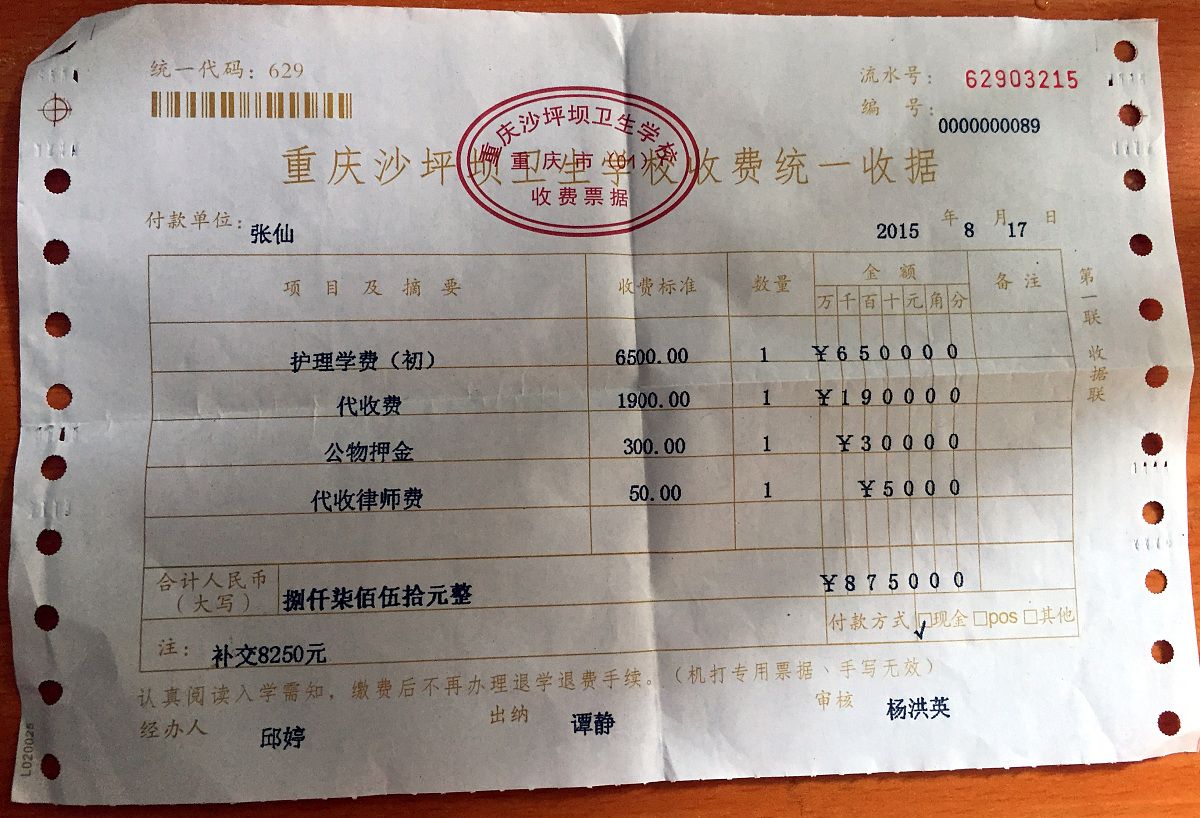 统一代码：629
流水号：62903215
编 号：0000000089
重庆沙坪坝卫生学校收费统一收据
重庆沙坪坝卫生学校
重庆市（01）
收费票据
付款单位：张仙
2015年8月17日
项目及摘要 收费标准 数量 金额 备注
万千百十元角分
护理学费（初） 6500.00 1 ¥650000
代收费 1900.00 1 ¥190000
公物押金 300.00 1 ¥30000
代收律师费 50.00 1 ¥5000
合计人民币（大写） 捌仟柒佰伍拾元整 ¥875000
付款方式 ☑现金 □pos □其他
注：补交8250元
认真阅读入学需知，缴费后不再办理退学退费手续。（机打专用票据、手写无效）
经办人 邱婷 出纳 谭静 审核 杨洪英
第一联 收据联